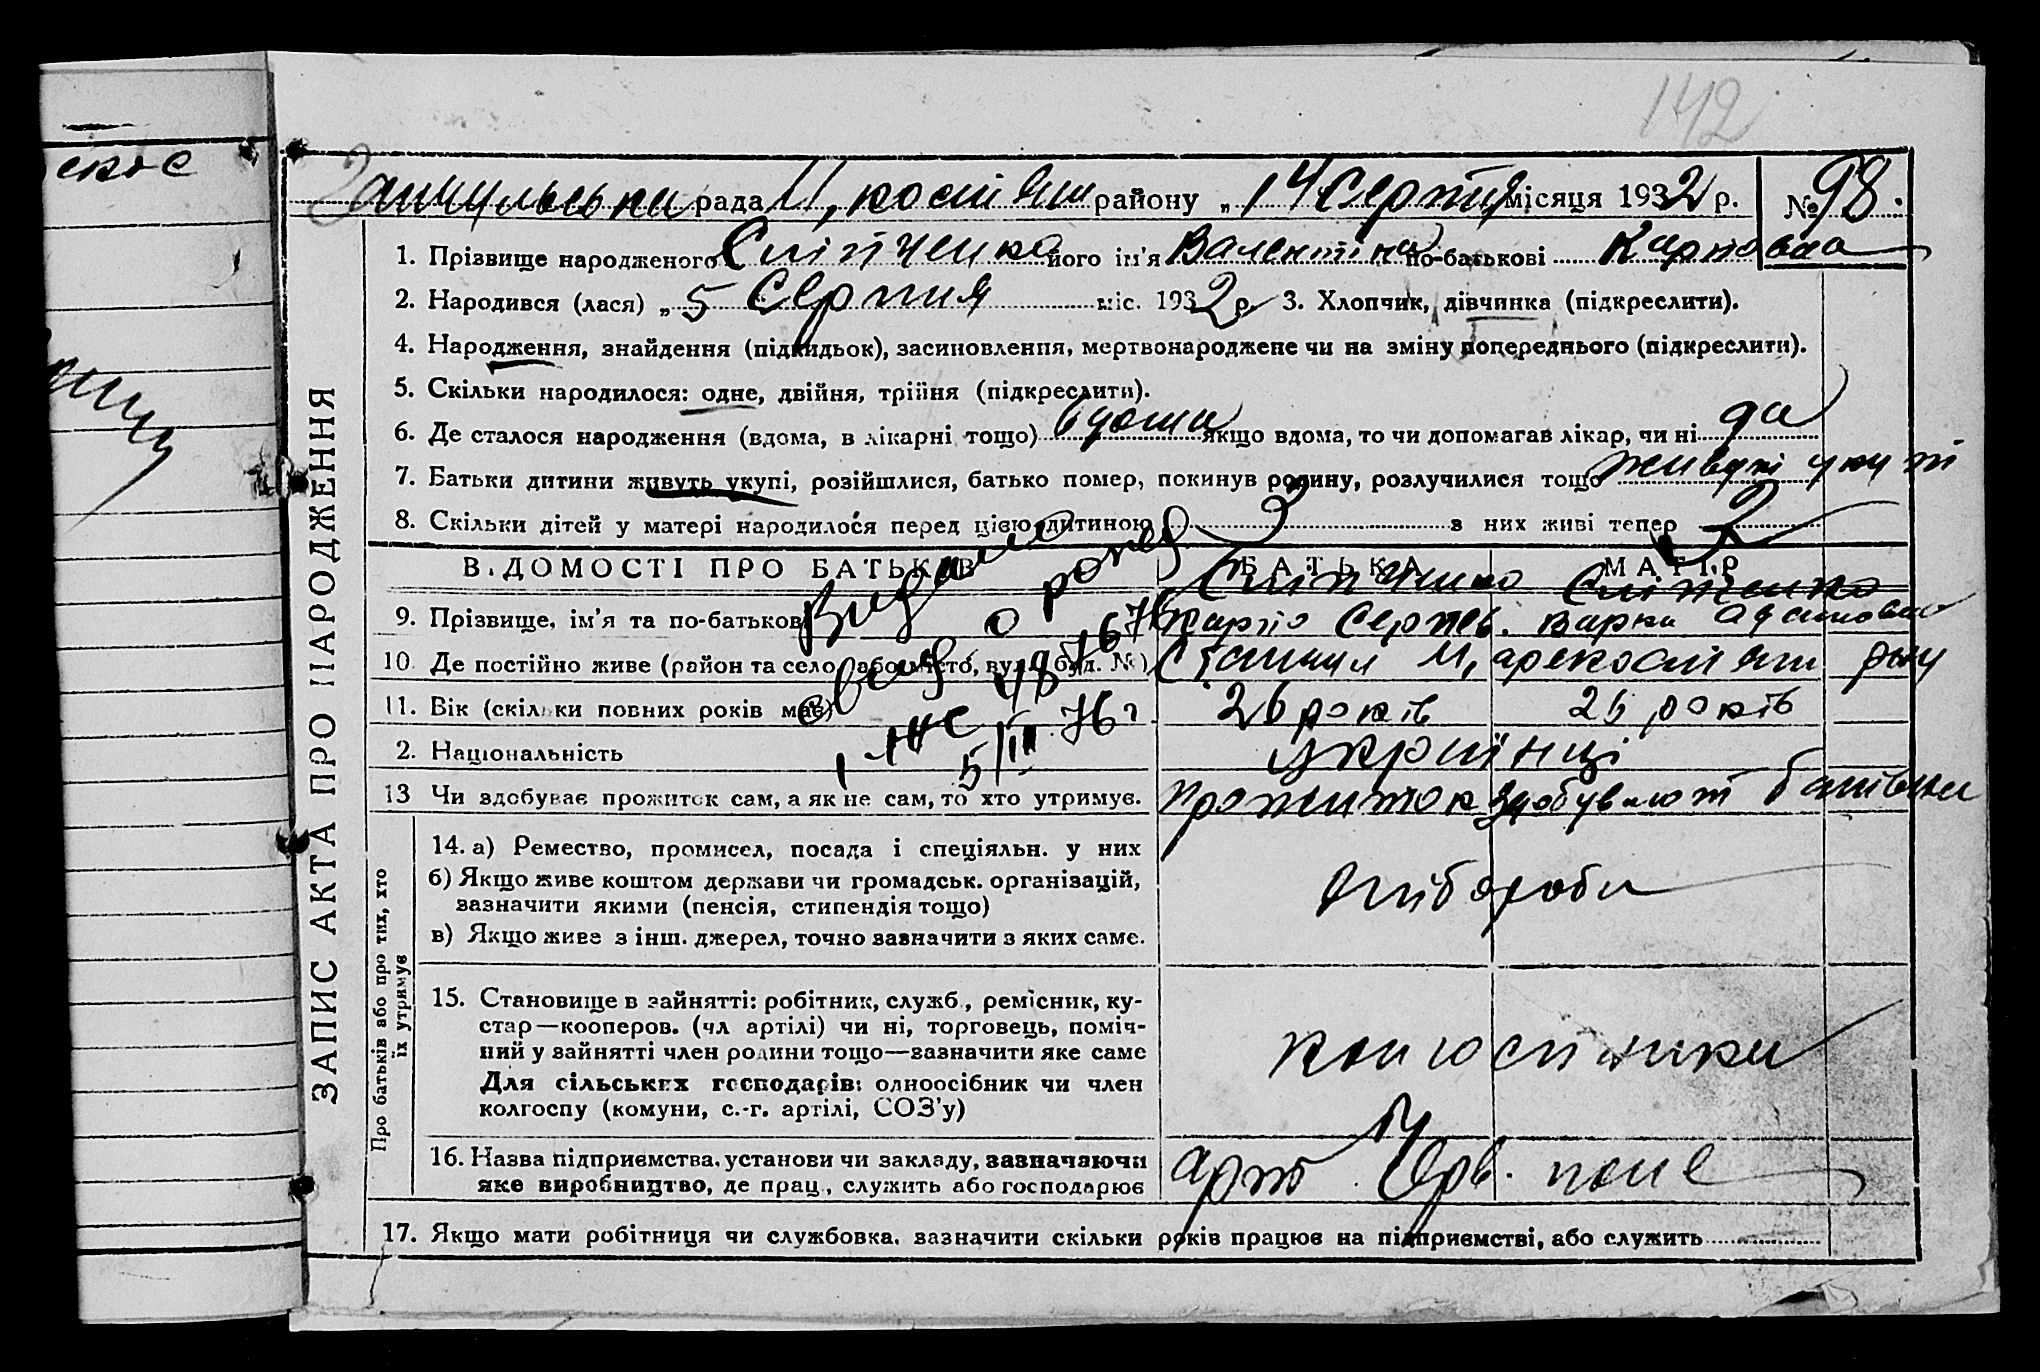 142
рада района „14 Серпня місяця 1932 р. № 98.
1. Прізвище народженого Сліпченко його ім'я Валентіна по-батькові Карповна
2. Народився (лася) „5 Серпня міс. 1932 р. 3. Хлопчик, дівчинка (підкреслити).
4. Народження, знайдення (підкидьок), засиновлення, мертвонароджене чи на зміну попереднього (підкреслити).
5. Скільки народилося: одне, двійня, трійня (підкреслити).
6. Де сталося народження (вдома, в лікарні тощо) вдома якщо вдома, то чи допомагав лікар, чи ні да
7. Батьки дитини живуть укупі, розійшлися, батько помер, покинув родину, розлучилися тощо живуть укупі
8. Скільки дітей у матері народилося перед цією дитиною 3 з них живі тепер 2
ВІДОМОСТІ ПРО БАТЬКІВ БАТЬКА МАТІР
Сліпченко Сліпченко
9. Прізвище, ім'я та по-батькові Карпо Сергєев. Варка Адамовна
10. Де постійно живе (район та село, або місто, вул., буд. №)
11. Вік (скільки повних років має) 26 років 26 років
2. Національність українці
13 Чи здобуває прожиток сам, а як не сам, то хто утримує. прожиток здобувают
14. а) Ремество, промисел, посада і спеціяльн. у них
б) Якщо живе коштом держави чи громадськ. організацій,
зазначити якими (пенсія, стипендія тощо)
в) Якщо живе з інш. джерел, точно зазначити з яких саме.
хлібороби
15. Становище в зайнятті: робітник, служб., ремісник, ку-
стар—кооперов. (чл артілі) чи ні, торговець, поміч-
ний у зайнятті член родини тощо—зазначити яке саме
Для сільських господарів: одноосібник чи член
колгоспу (комуни, с.-г. артілі, СОЗ'у)
колгоспники
16. Назва підприємства, установи чи закладу, зазначаючи
яке виробництво, де прац., служить або господарює
арт. Черв. поле
17. Якщо мати робітниця чи службовка, зазначити скільки років працює на підприємстві, або служить
ЗАПИС АКТА ПРО НАРОДЖЕННЯ
Про батьків або про тих, хто
їх утримує
Видано
свид о рожд
1 ЖС
5/III 76 г